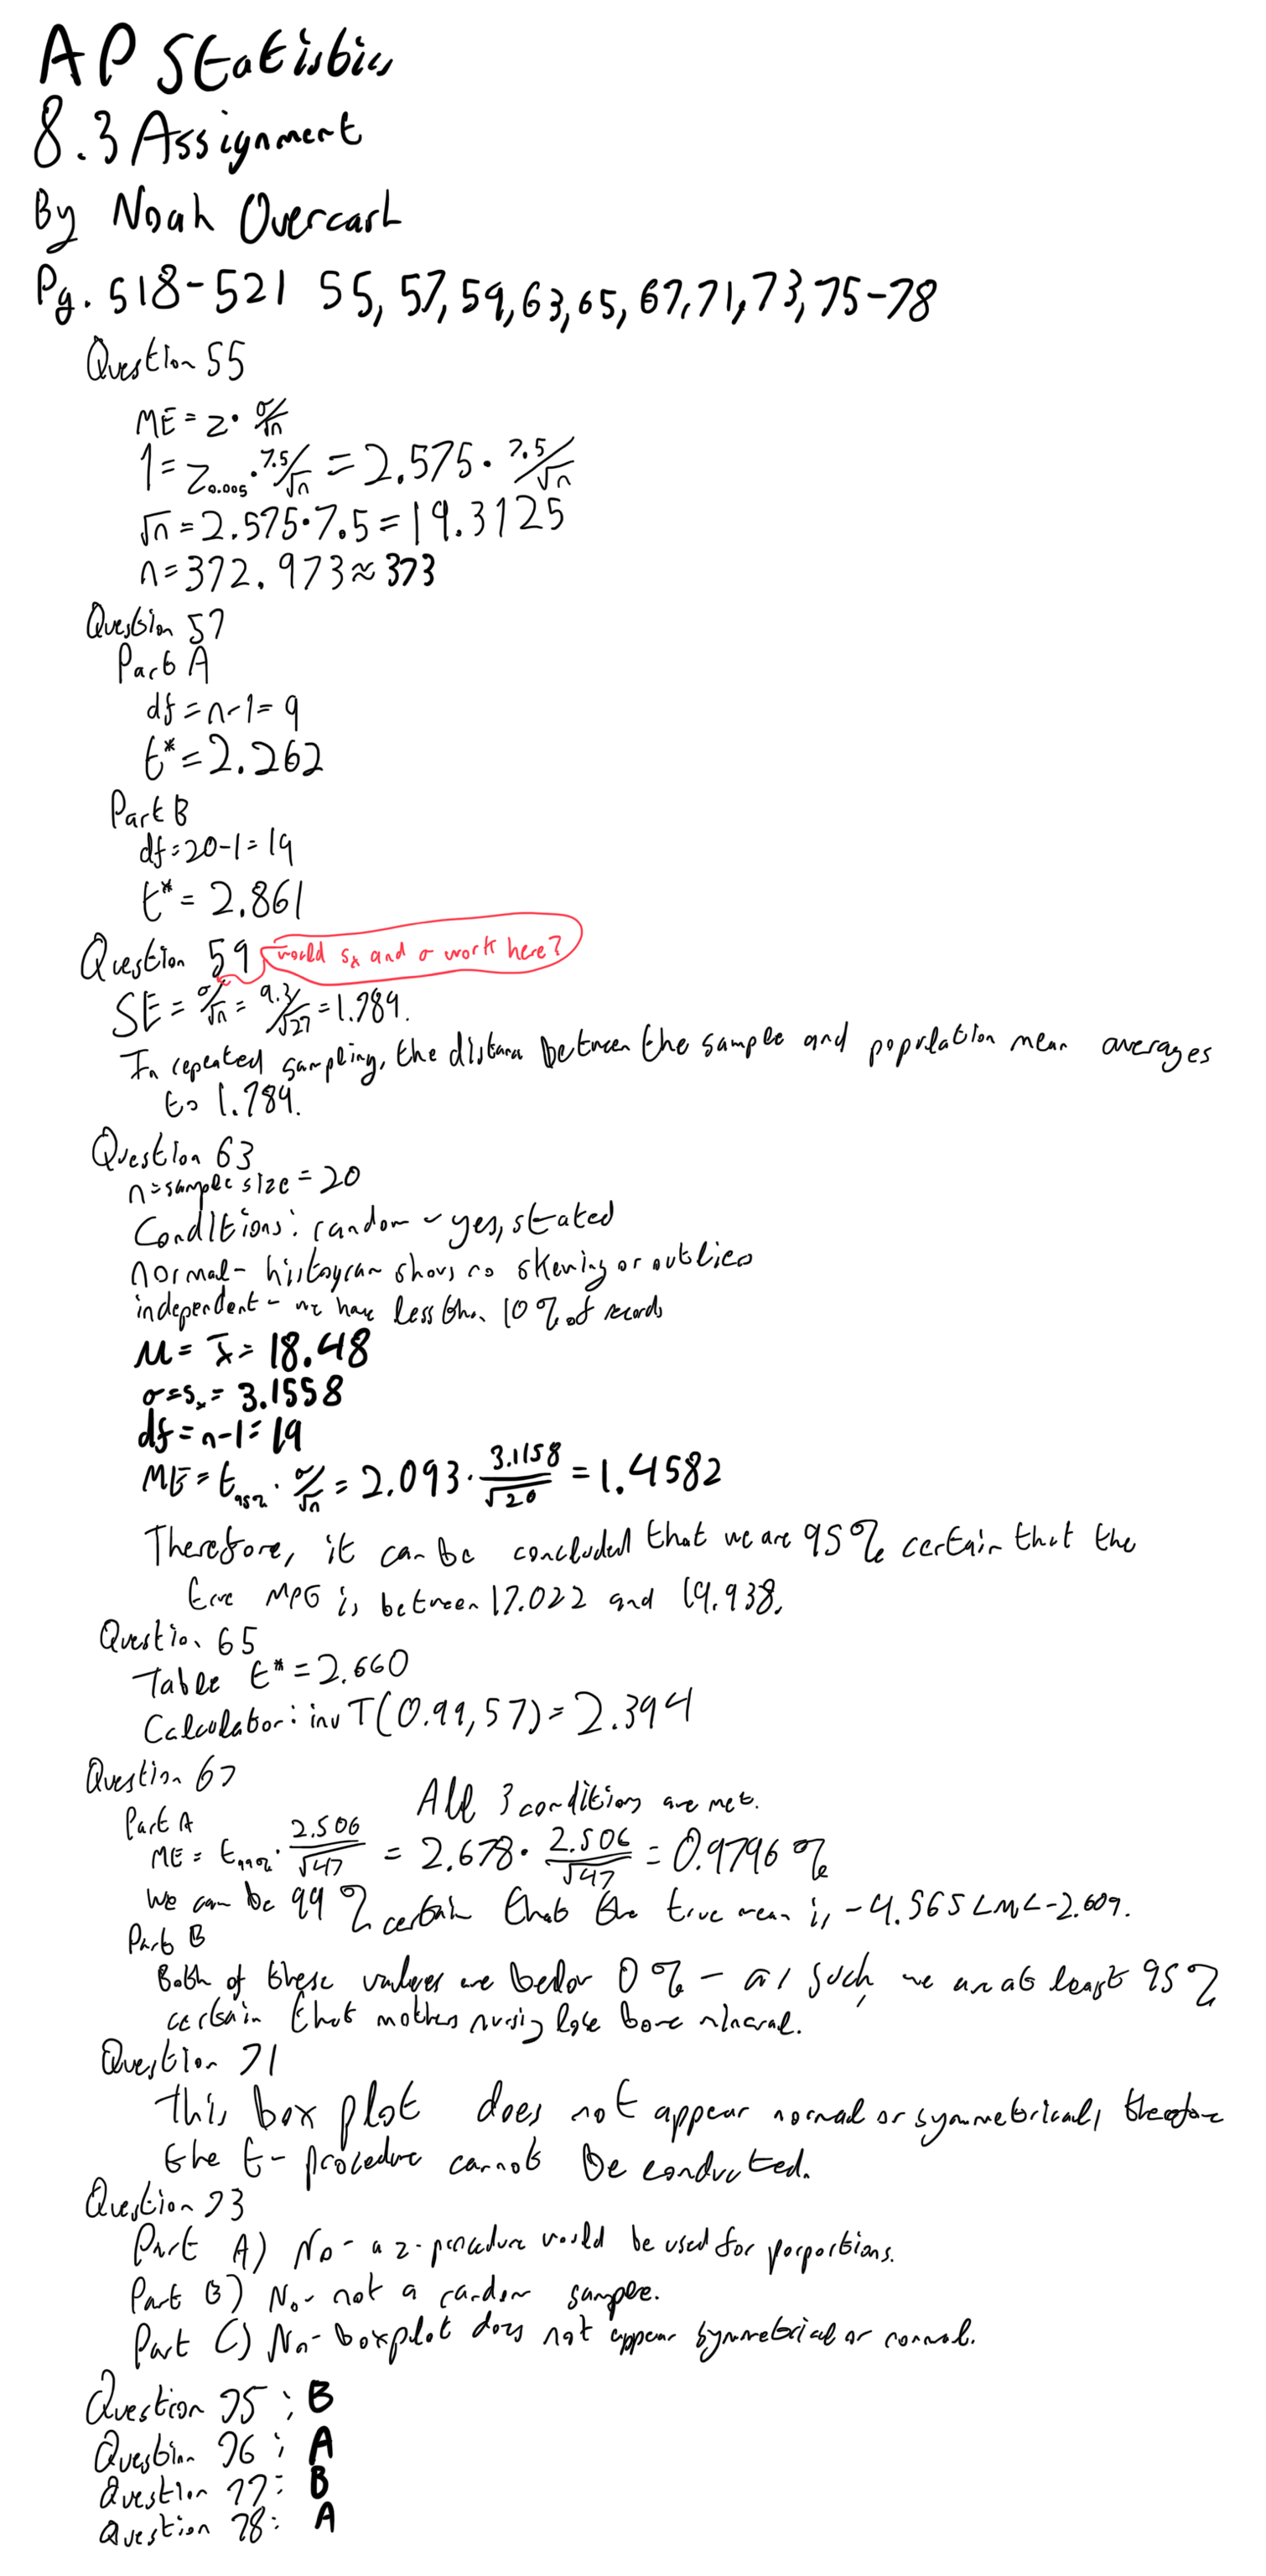 AP Statistics
8.3 Assignment
By Noah Overcash
Pg. 518-521 55, 57, 59, 63, 65, 67, 71, 73, 75-78
Question 55
ME = z · σ/√n
1 = z0.005 · 7.5/√n = 2.575 · 7.5/√n
√n = 2.575 · 7.5 = 19.3125
n = 372.973 ≈ 373
Question 57
Part A
df = n-1 = 9
t* = 2.262
Part B
df = 20-1 = 19
t* = 2.861
Question 59 would sx and σ work here?
SE = σ/√n = 9.3/√27 = 1.789.
In repeated sampling, the distance between the sample and population mean averages
to 1.789.
Question 63
n = sample size = 20
Conditions: random - yes, stated
normal - histogram shows no skewing or outliers
independent - we have less than 10% of records
μ = x̄ = 18.48
σ = sx = 3.1558
df = n-1 = 19
ME = t95% · σ/√n = 2.093 · 3.1158/√20 = 1.4582
Therefore, it can be concluded that we are 95% certain that the
true MPG is between 17.022 and 19.938.
Question 65
Table t* = 2.660
Calculator: invT(0.99, 57) = 2.394
Question 67
All 3 conditions are met.
Part A
ME = t99% · 2.506/√47 = 2.678 · 2.506/√47 = 0.9796%
We can be 99% certain that the true mean is -4.565 < μ < -2.609.
Part B
Both of these values are below 0% - as such, we are at least 95%
certain that mothers nursing lose bone mineral.
Question 71
This box plot does not appear normal or symmetrical, therefore
the t-procedure cannot be conducted.
Question 73
Part A) No - a z-procedure would be used for porportions.
Part B) No - not a random sample.
Part C) No - boxplot does not appear symmetrical or normal.
Question 75: B
Question 76: A
Question 77: B
Question 78: A